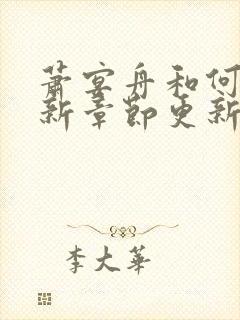 萧宴舟和何
新章节更新
李大华